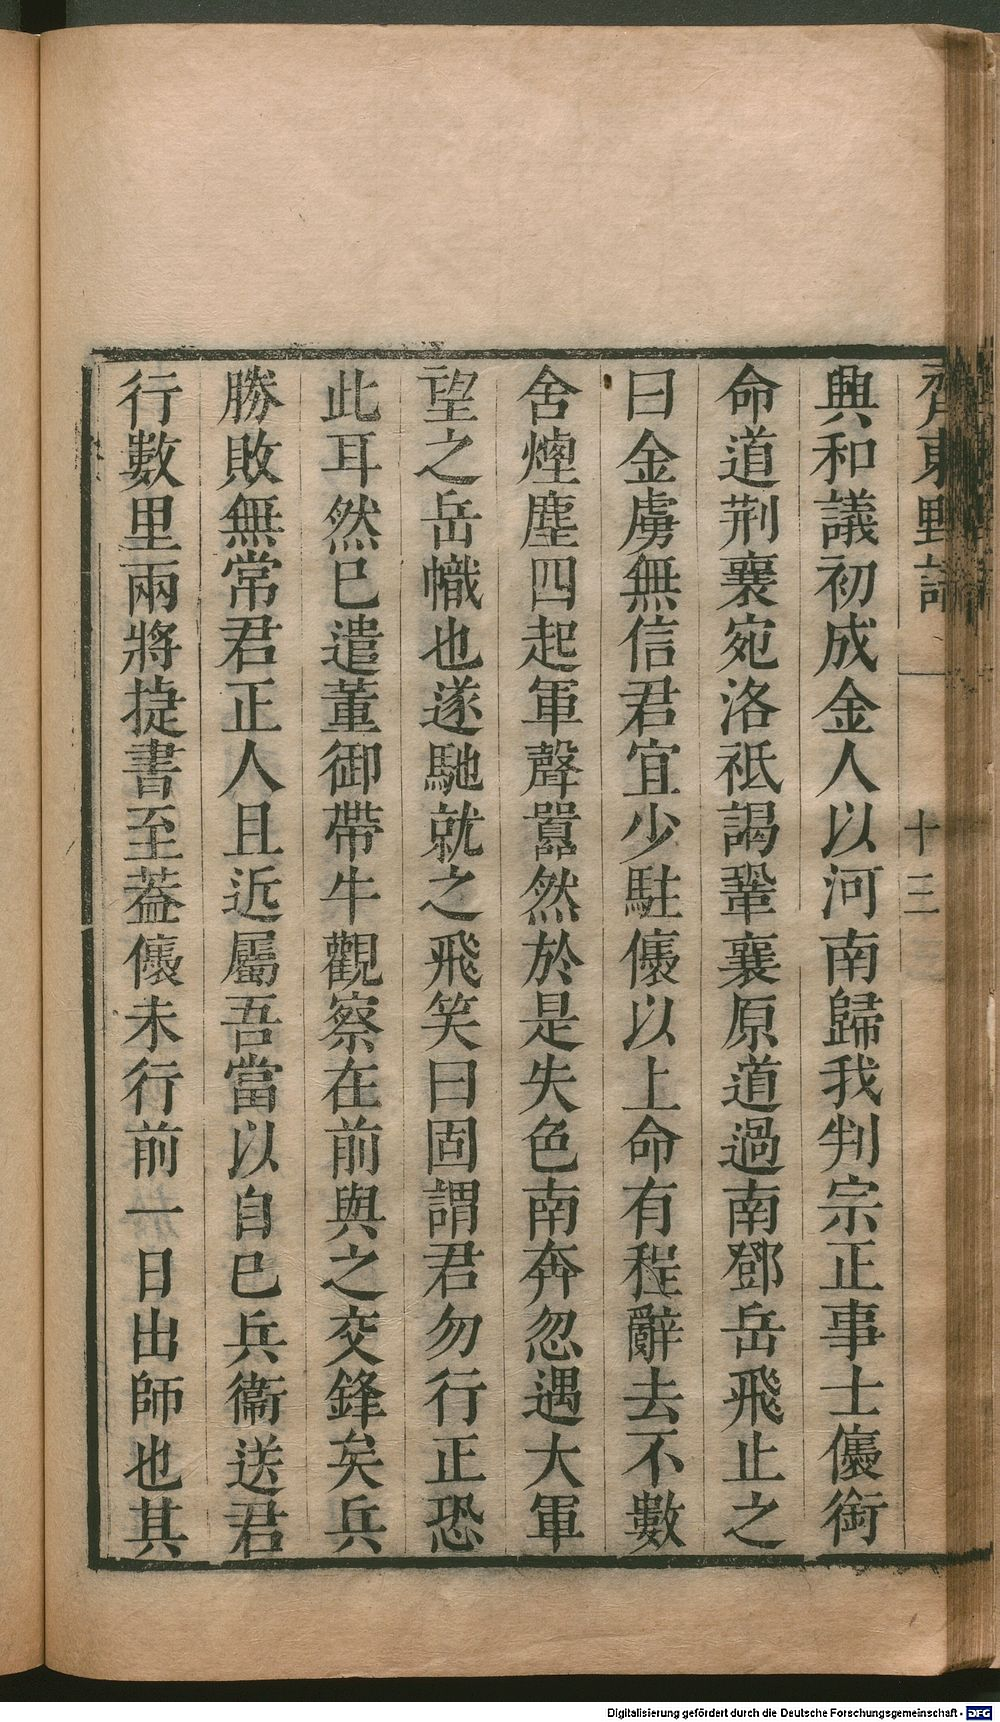 齊東野語 十三
興和議初成金人以河南歸我判宗正事士㒟銜
命道荆襄宛洛祗謁鞏襄原道過南鄧岳飛止之
曰金虜無信君宜少駐㒟以上命有程辭去不數
舍煙塵四起軍聲囂然於是失色南奔忽遇大軍
望之岳幟也遂馳就之飛笑曰固謂君勿行正恐
此耳然巳遣董御帶牛觀察在前與之交鋒矣兵
勝敗無常君正人且近屬吾當以自巳兵衞送君
行數里兩將捷書至葢㒟未行前一日出師也其
Digitalisierung gefördert durch die Deutsche Forschungsgemeinschaft - DFG